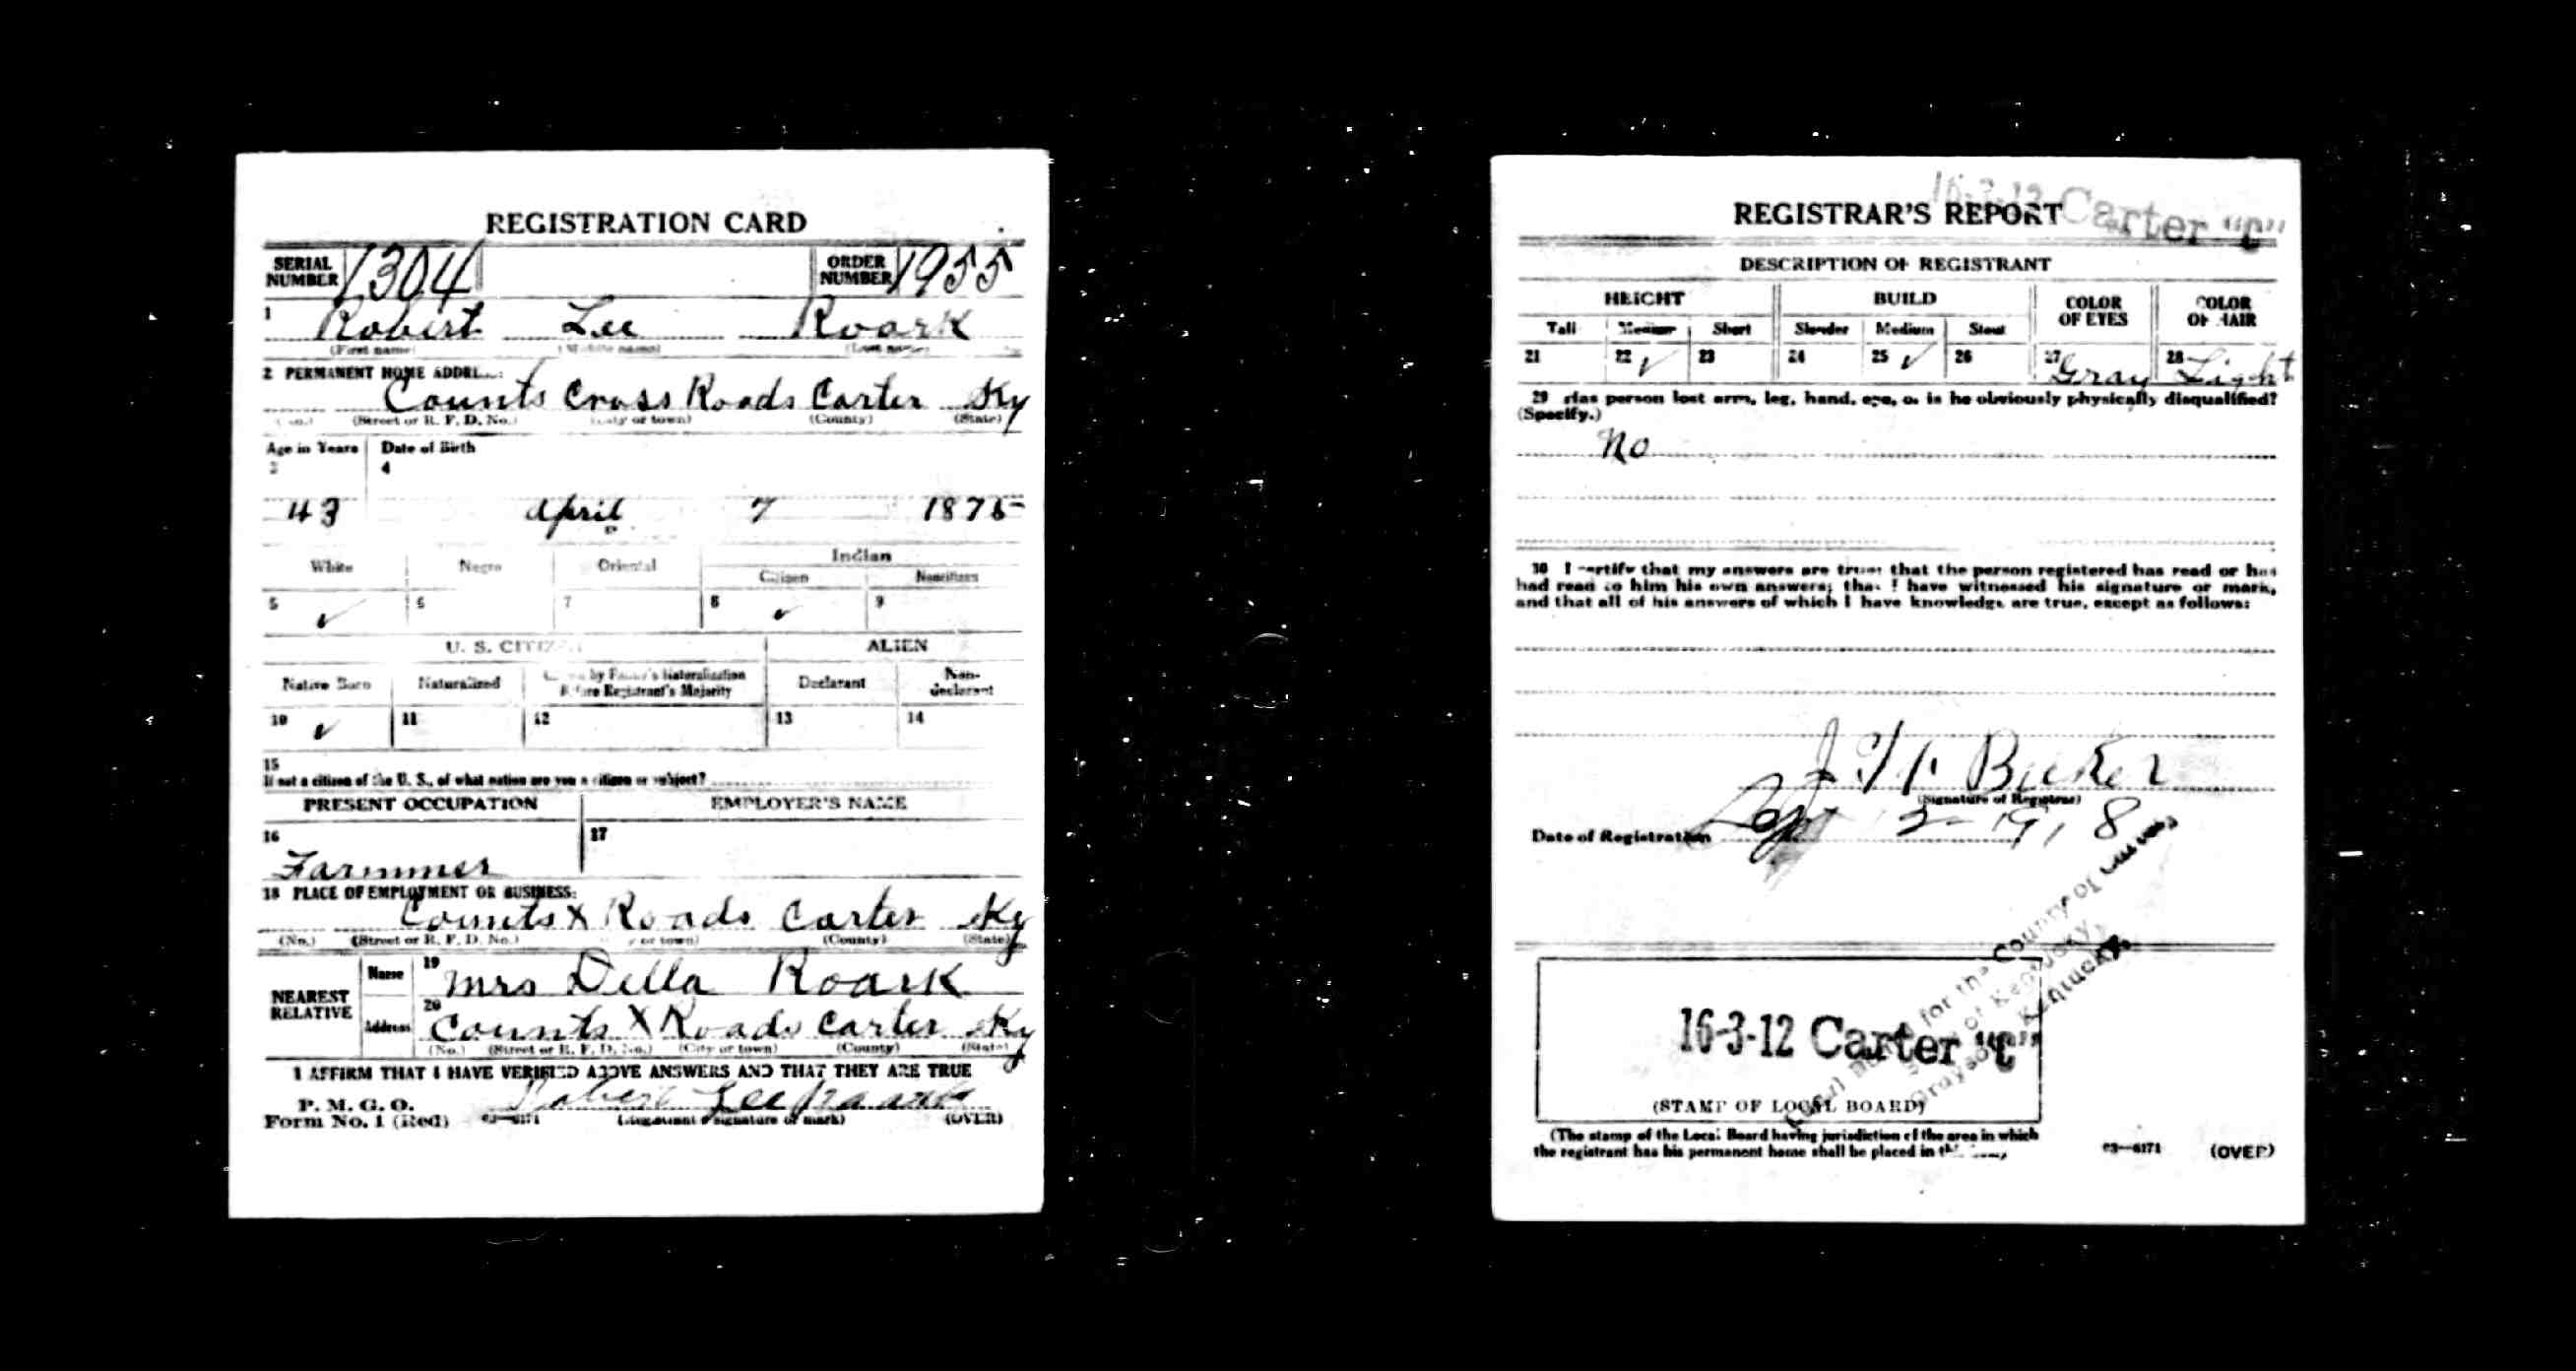 REGISTRATION CARD
SERIAL NUMBER 1304 ORDER NUMBER 1955
1 Robert Lee Roark
(First name) (Middle name) (Last name)
2 PERMANENT HOME ADDRESS:
Counts Cross Roads Carter Ky
(No.) (Street or R. F. D. No.) (City or town) (County) (State)
Age in Years Date of Birth
3 4
43 April 7 1875
White Negro Oriental Indian
Citizen Noncitizen
5 ✓ 6 7 8 ✓ 9
U. S. CITIZEN ALIEN
Native Born Naturalized Citizen by Father's Naturalization Before Registrant's Majority Declarant Non-declarant
10 ✓ 11 12 13 14
15
If not a citizen of the U. S., of what nation are you a citizen or subject?
PRESENT OCCUPATION EMPLOYER'S NAME
16 17
Farmmer
18 PLACE OF EMPLOYMENT OR BUSINESS:
Counts X Roads Carter Ky
(No.) (Street or R. F. D. No.) (City or town) (County) (State)
NEAREST RELATIVE Name 19 Mrs Della Roark
Address 20 Counts X Roads Carter Ky
(No.) (Street or R. F. D. No.) (City or town) (County) (State)
I AFFIRM THAT I HAVE VERIFIED ABOVE ANSWERS AND THAT THEY ARE TRUE
P. M. G. O.
Form No. 1 (Red) 03—6171 Robert Lee Roark
(Registrant's signature or mark) (OVER)
16-3-12 Carter "C"
REGISTRAR'S REPORT
DESCRIPTION OF REGISTRANT
HEIGHT BUILD COLOR OF EYES COLOR OF HAIR
Tall Medium Short Slender Medium Stout
21 22 ✓ 23 24 25 ✓ 26 27 Gray 28 Light
29 Has person lost arm, leg, hand, eye, or is he obviously physically disqualified?
(Specify.)
No
30 I certify that my answers are true; that the person registered has read or has
had read to him his own answers; that I have witnessed his signature or mark,
and that all of his answers of which I have knowledge are true, except as follows:
(Signature of Registrar)
Date of Registration Sept 12 1918
Local Board for the County of Carter,
State of Kentucky,
Grayson, Kentucky.
16-3-12 Carter "C"
(STAMP OF LOCAL BOARD)
(The stamp of the Local Board having jurisdiction of the area in which
the registrant has his permanent home shall be placed in this box.)
03—6171 (OVER)